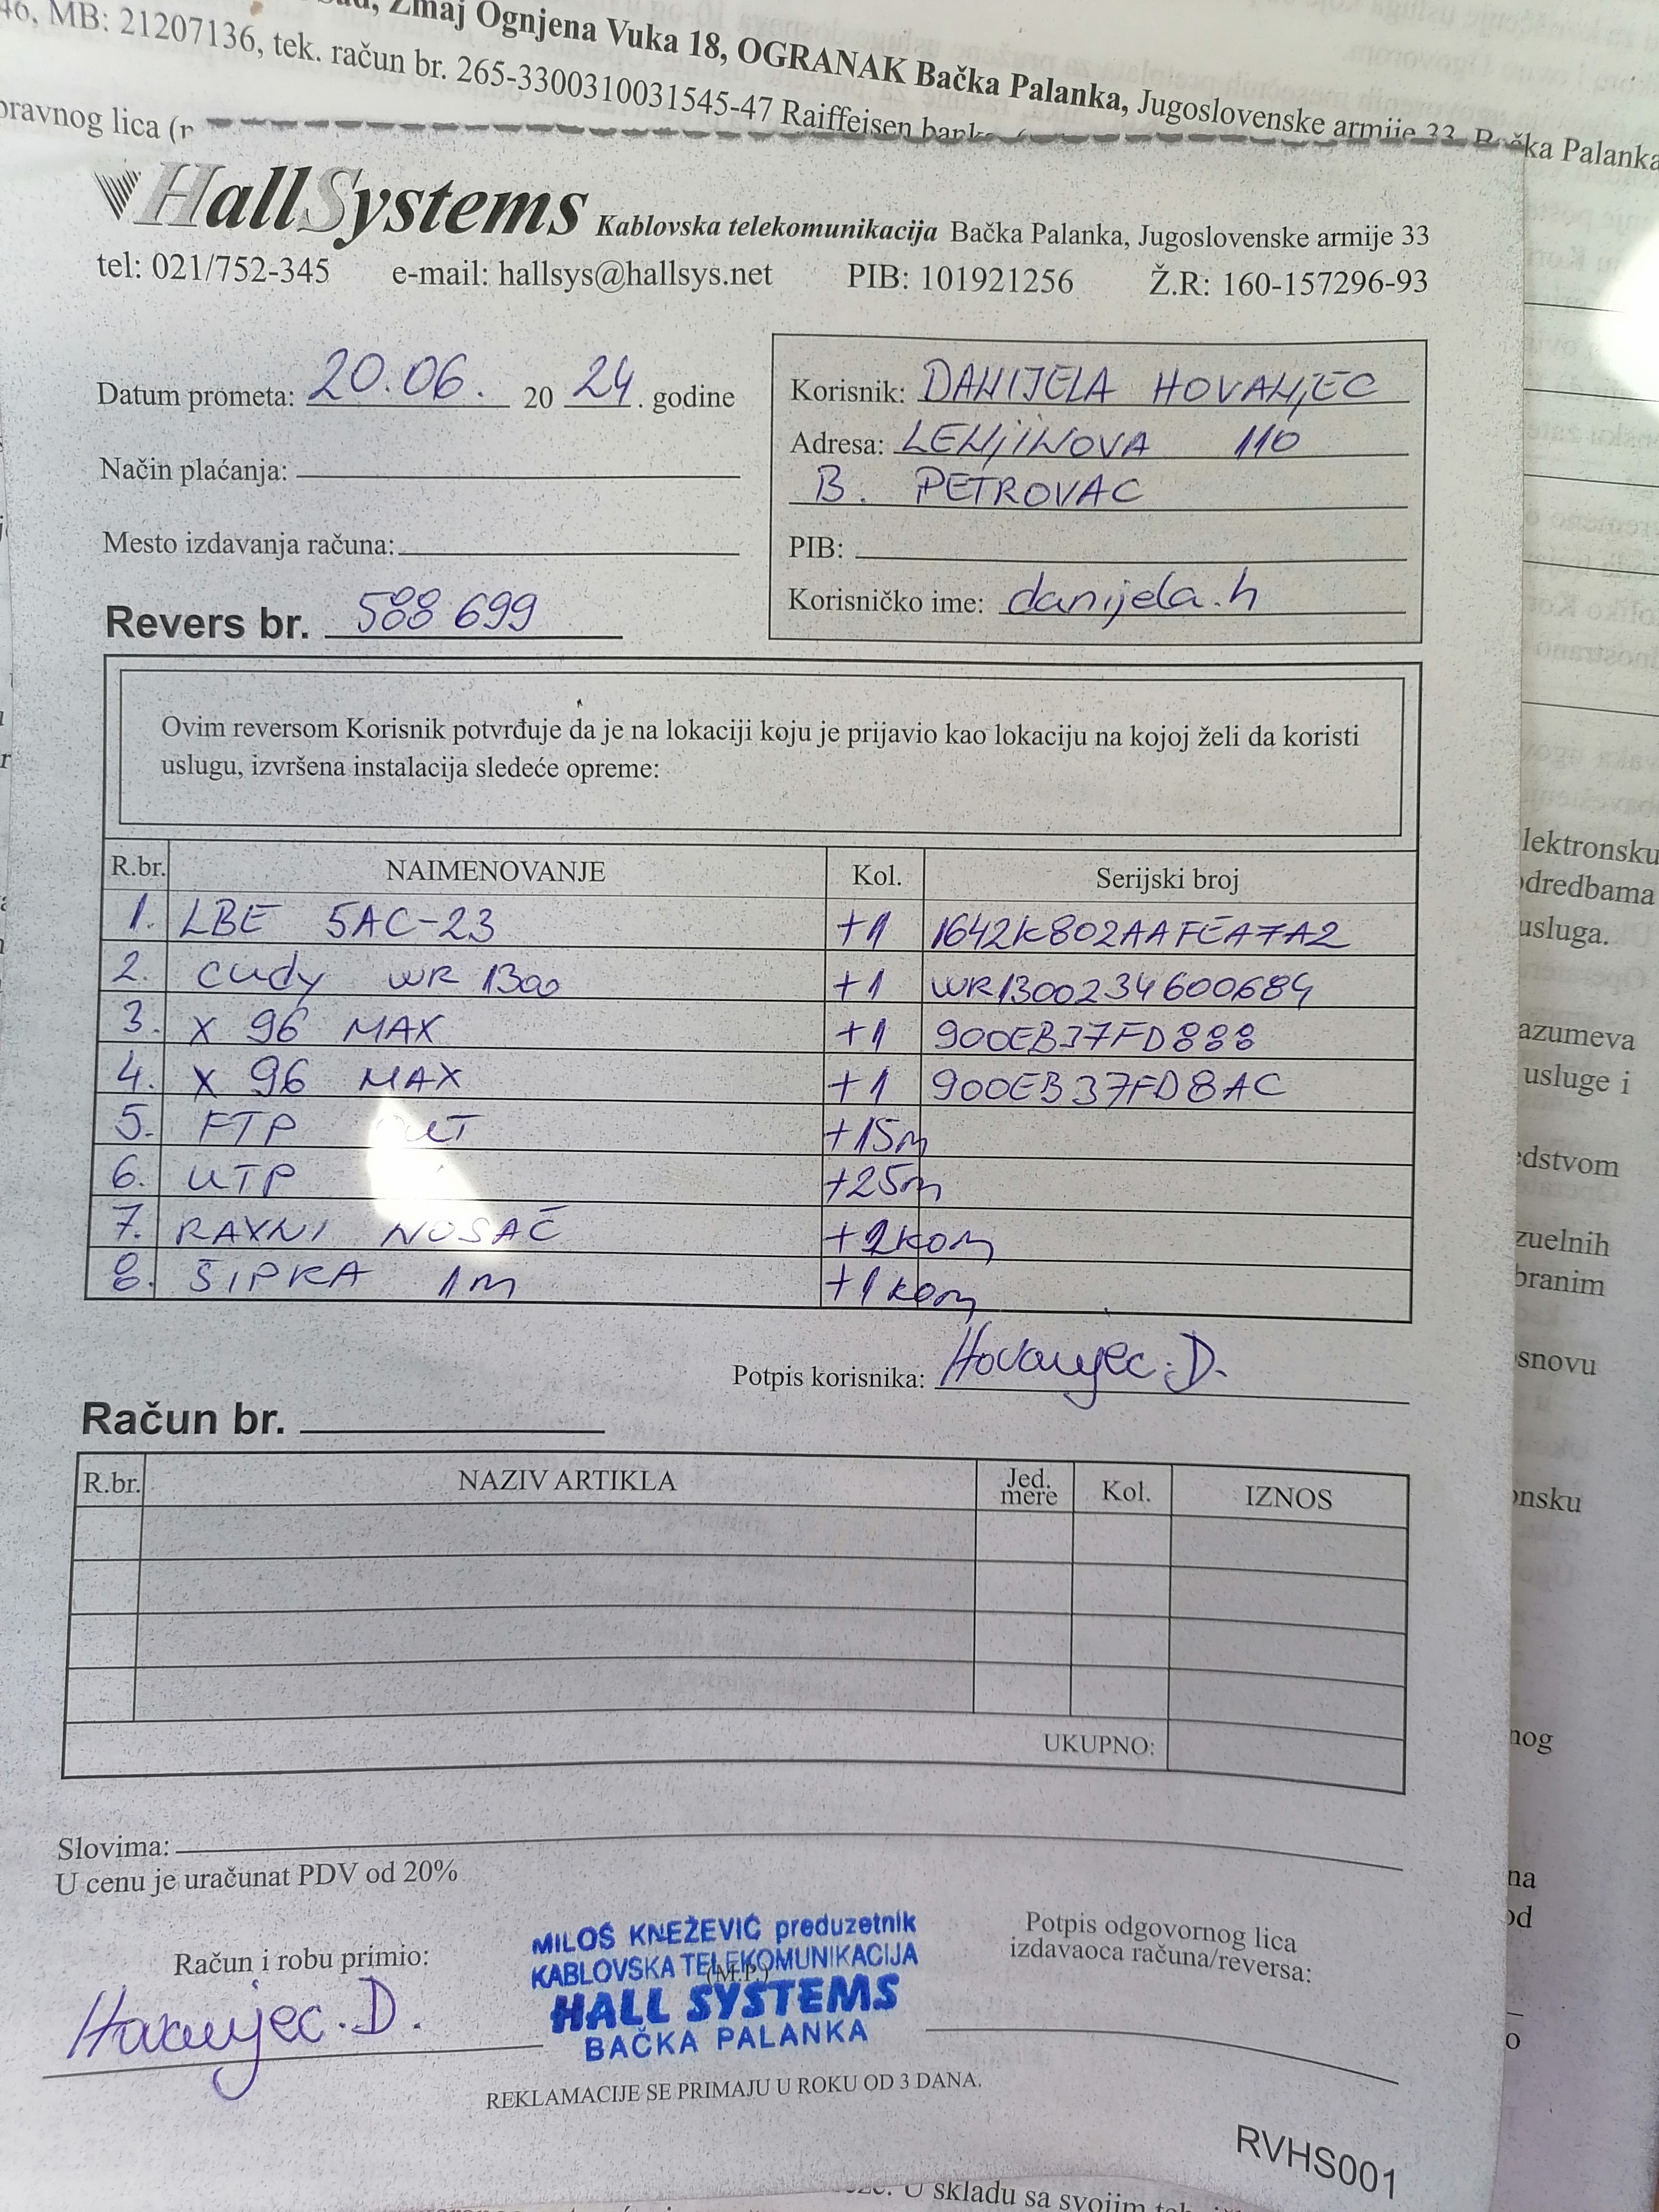 Zmaj Ognjena Vuka 18, OGRANAK Bačka Palanka, Jugoslovenske armije 33, Bačka Palanka
46, MB: 21207136, tek. račun br. 265-3300310031545-47 Raiffeisen
pravnog lica
HallSystems Kablovska telekomunikacija Bačka Palanka, Jugoslovenske armije 33
tel: 021/752-345 e-mail: hallsys@hallsys.net PIB: 101921256 Ž.R: 160-157296-93
Datum prometa: 20.06. 20 24. godine
Način plaćanja:
Mesto izdavanja računa:
Revers br. 588 699
Korisnik: DANIJELA HOVANJEC
Adresa: LENJINOVA 110
B. PETROVAC
PIB:
Korisničko ime: danijela.h
Ovim reversom Korisnik potvrđuje da je na lokaciji koju je prijavio kao lokaciju na kojoj želi da koristi
uslugu, izvršena instalacija sledeće opreme:
R.br. NAIMENOVANJE Kol. Serijski broj
1. LBE 5AC-23 +1 1642K802AAFEA7A2
2. Cudy WR 1300 +1 WR1300234600684
3. X 96 MAX +1 900EB37FD888
4. X 96 MAX +1 900EB37FD8AC
5. FTP +15m
6. UTP +25m
7. RAVNI NOSAČ +2kom
8. ŠIPKA 1m +1kom
Potpis korisnika: Hovanjec.D.
Račun br.
R.br. NAZIV ARTIKLA Jed. mere Kol. IZNOS
UKUPNO:
Slovima:
U cenu je uračunat PDV od 20%
Račun i robu primio:
Hovanjec.D.
MILOŠ KNEŽEVIĆ preduzetnik
KABLOVSKA TELEKOMUNIKACIJA
(M.P.)
HALL SYSTEMS
BAČKA PALANKA
Potpis odgovornog lica
izdavaoca računa/reversa:
REKLAMACIJE SE PRIMAJU U ROKU OD 3 DANA.
RVHS001
lektronsku
odredbama
usluga.
azumeva
usluge i
edstvom
zuelnih
branim
snovu
onsku
nog
na
od
o
U skladu sa svojim